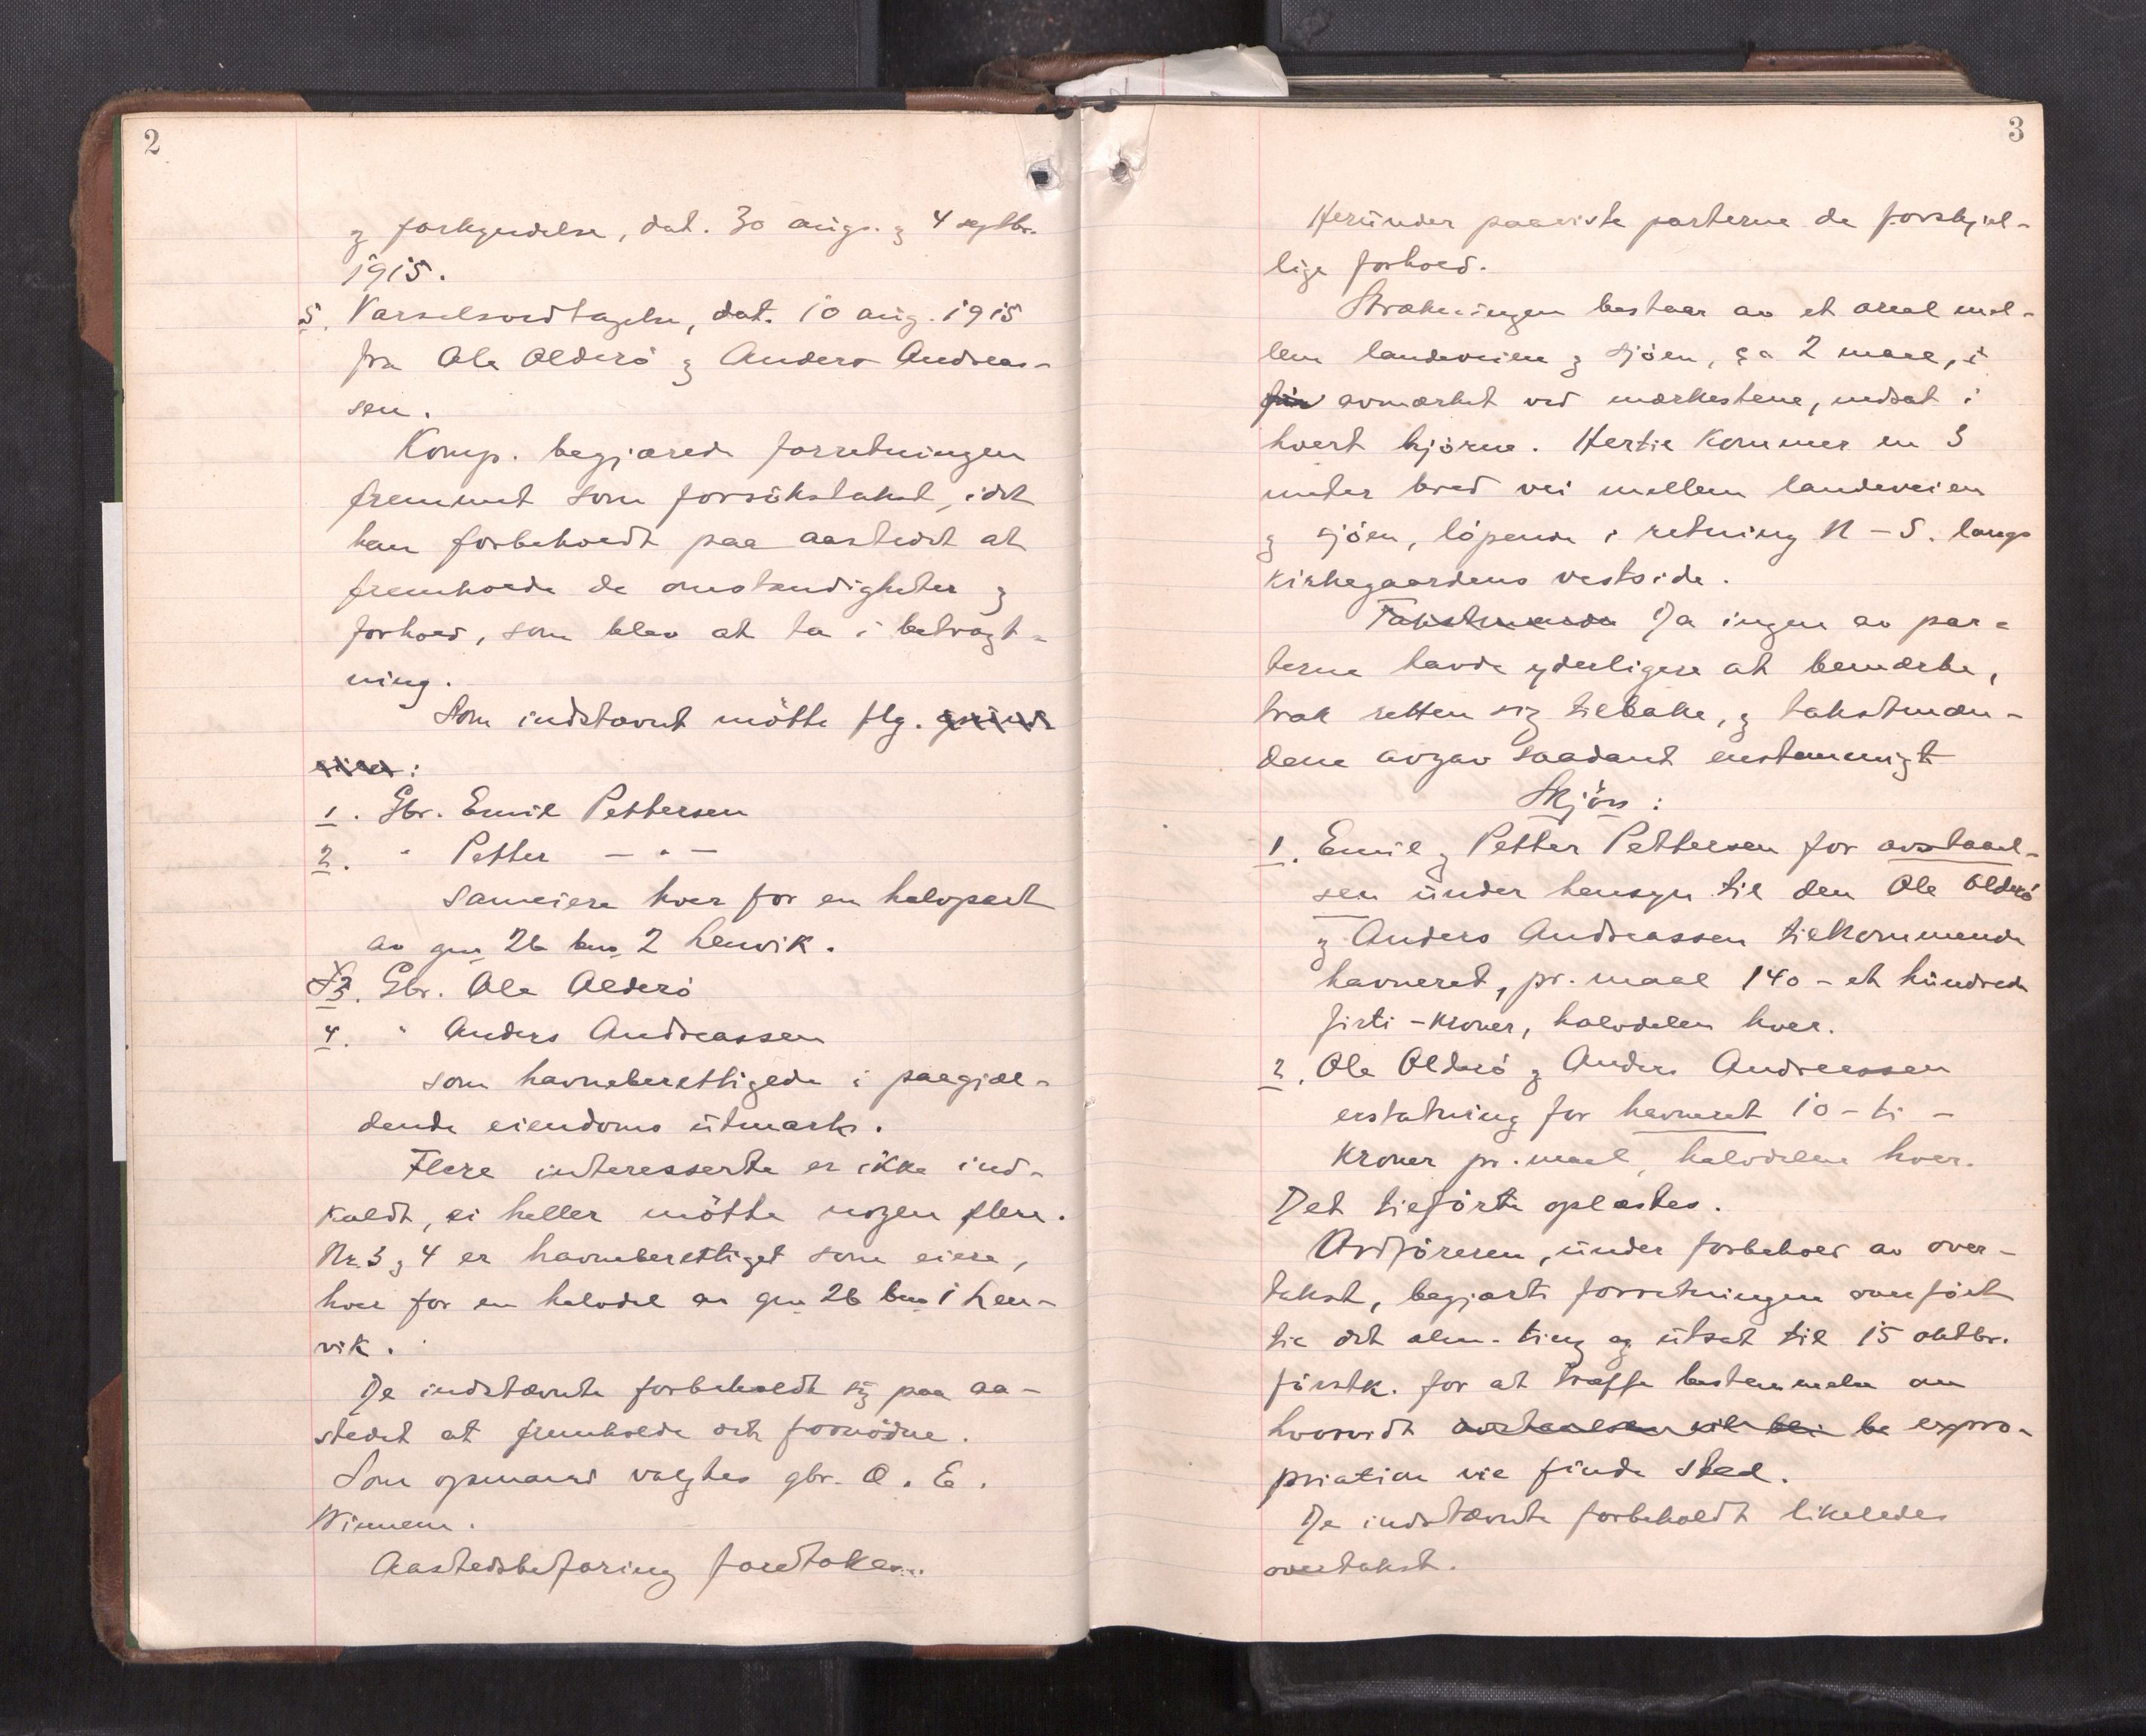 2
og forkyndelse, dat. 30 aug. og 4 septbr.
1915.
5. Varselsvedtagelse, dat. 10 aug. 1915
fra Ole Olderö og Anders Andreas-
sen.
Komp. begjærede forretningen
fremmet som forsökstakst, idet
han forbeholdt paa aastedet at
fremholde de omstændigheter og
forhold, som blev at ta i betragt-
ning.
Som indstævnt mötte flg.
:
1. Gbr. Emil Pettersen
2. " Petter — " —
sameiere hver for en halvpart
av gno 26 bno 2 Lenvik.
3. Gbr. Ole Olderö
4. " Anders Andreassen
som havneberettigede i paagjæl-
dende eiendoms utmark.
Flere interesserte er ikke ind-
kaldt, ei heller mötte nogen flere.
Nr. 3 og 4 er havneberettiget som eiere,
hver for en halvdel av gno 26 bno 1 Len-
vik.
De indstævnte forbeholdt sig paa aa-
stedet at fremholde det fornödne.
Som opmand valgtes gbr. O. E.
Winnem.
Aastedsbefaring foretokes...
3
Herunder paaviste parterne de forskjel-
lige forhold.
Strækningen bestaar av et areal mel-
lem landeveien og sjöen, ca 2 maal, i
fir avmerket ved merkestene, nedsat i
hvert hjörne. Hertil kommer en 3
meter bred vei mellem landeveien
og sjöen, löpende i retning N - S. langs
kirkegaardens vestside.
Takstmænde Da ingen av par-
terne havde yderligere at bemærke,
trak retten sig tilbake, og takstmæn-
dene avgav saadant enstemmigt
Skjön:
1. Emil og Petter Pettersen for avstaael-
sen under hensyn til den Ole Olderö
og Anders Andreassen tilkommende
havneret, pr. maal 140 - et hundrede
firti - kroner, halvdelen hver.
2. Ole Olderö og Anders Andreassen
erstatning for havneret 10 - ti -
kroner pr. maal, halvdelen hver.
Det tilförte oplæstes.
Ordföreren, under forbehold av over-
takst, begjærte forretningen overfört
til det alm. ting og utsat til 15 oktbr.
förstk. for at træffe bestemmelse om
hvorvidt avstaaelsen vil bli be expro-
priation vil finde sted.
De indstævnte forbeholdt likeledes
overtakst.